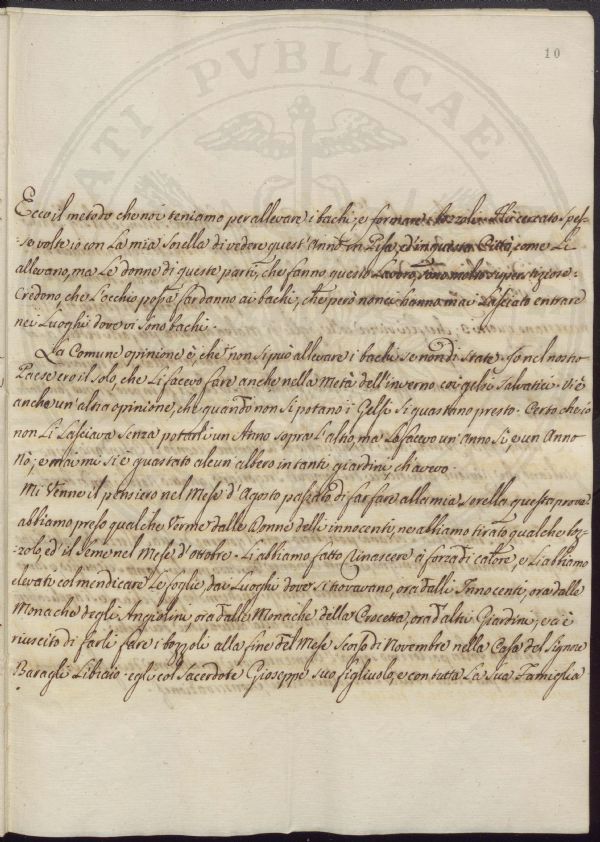 10
ATI PVBLICAE
Ecco il metodo che noi teniamo per allevare i bachi, e formare i bozzoli. Hò cercato spes-
-se volte io con la mia Sorella di vedere quest'Anno in Pisa, e in questa Città, come li
allevano, ma le donne di queste parti, che fanno questo Lavoro, sono molto superstiziose.
Credono, che l'occhio possa far danno ai bachi, che però non ci hanno mai lasciato entrare
nei Luoghi dove vi sono bachi.
La Comune opinione è, che non si può allevare i bachi se non di State. Io nel nostro
Paese ero il solo, che li facevo fare anche nella Metà dell'inverno coi gelsi salvatici. Vi è
anche un'altra opinione, che quando non si potano i Gelsi si guastano presto. Certo che io
non li lasciava senza potarli un Anno sopra l'altro, ma lo facevo un'anno Sì, e un Anno
Nò, e mai mi si è guastato alcun'albero in tanti giardini, ch'avevo.
Mi venne il pensiero nel Mese d'Agosto passato di far fare alla mia sorella questa prova.
abbiamo preso qualche Verme dalle Donne delli innocenti, ne abbiamo tirato qualche boz-
-zolo, ed il seme nel Mese d'ottobre. Li abbiamo fatto rinascere a forza di calore, e li abbiamo
elevati col mendicare le foglie, dai Luoghi dove si trovavano, ora dalli Innocenti, ora dalle
Monache degli Angiolini, ora dalle Monache della Crocetta, ora d'altri Giardini, e ci è
riuscito di farli fare i bozzoli alla fine del Mese scorso di Novembre nella Casa del Signore
Baragli Libraio. egli col Sacerdote Gioseppe suo figliuolo, e con tutta la sua Famiglia